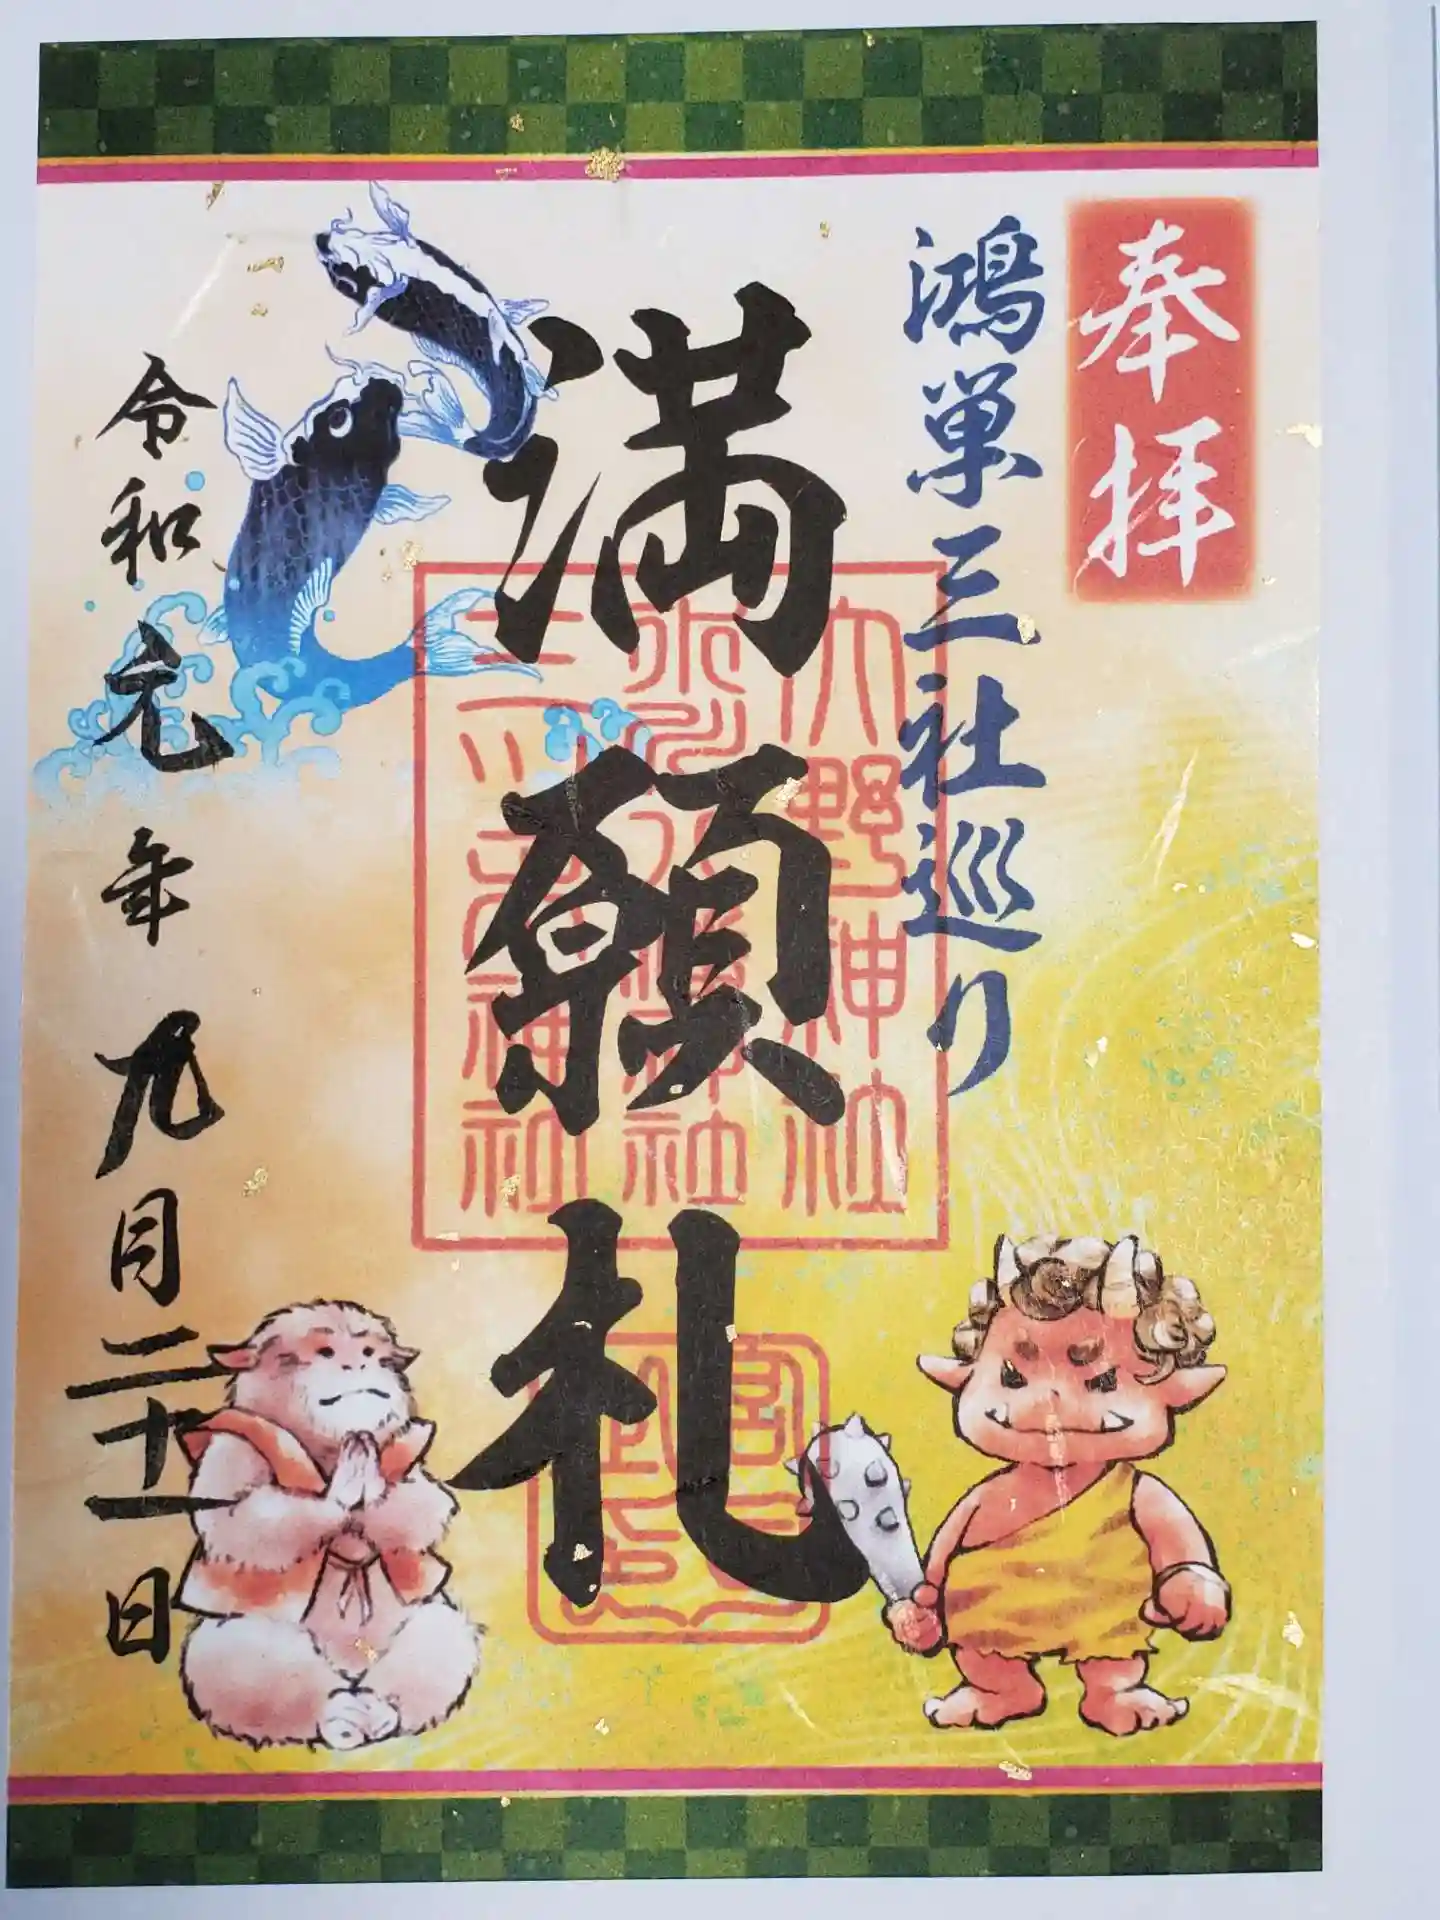 奉拝
鴻巣三社巡り
満願札
大野神社
氷川八幡神社
三ツ木神社
令和元年九月二十一日